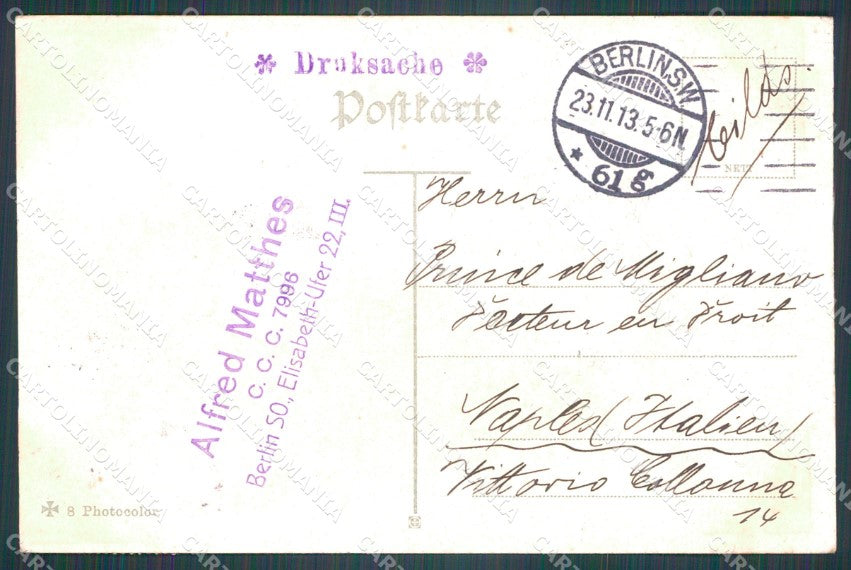 * Druksache *
Postkarte
BERLIN.S.W
23.11.13.5-6N.
* 61 g
NETI
Herrn
Prince de Migliano
en Droit
Naples (Italien)
Vittorio Collonna
14
Alfred Matthes
C. C. C. 7996
Berlin SO., Elisabeth-Ufer 22, III.
8 Photocolor
CARTOLINOMANIA